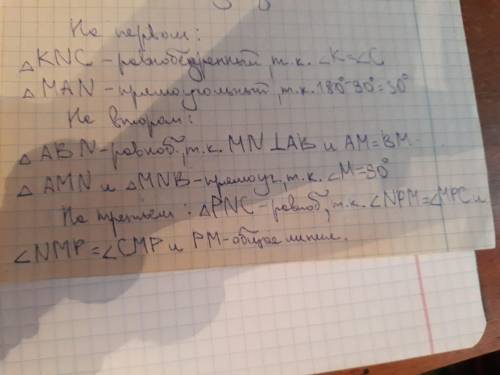 На первом:
△KNC-равнобедренный, т.к. ∠K=∠C
△MAN-прямоугольный, т.к. 180°-90°=90°
На втором:
△ABN-равноб, т.к. MN⊥AB и AM=BM.
△AMN и △MNB-прямоуг, т.к. ∠M=90°
На третьем: △PNC-равноб, т.к. ∠NPM=∠MPC и
∠NMP=∠CMP и PM-общая линия.